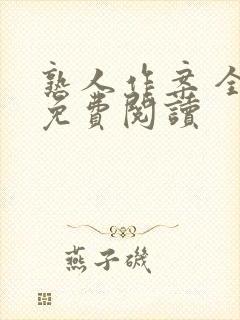 熟人作案全
免費閱讀
燕子磯